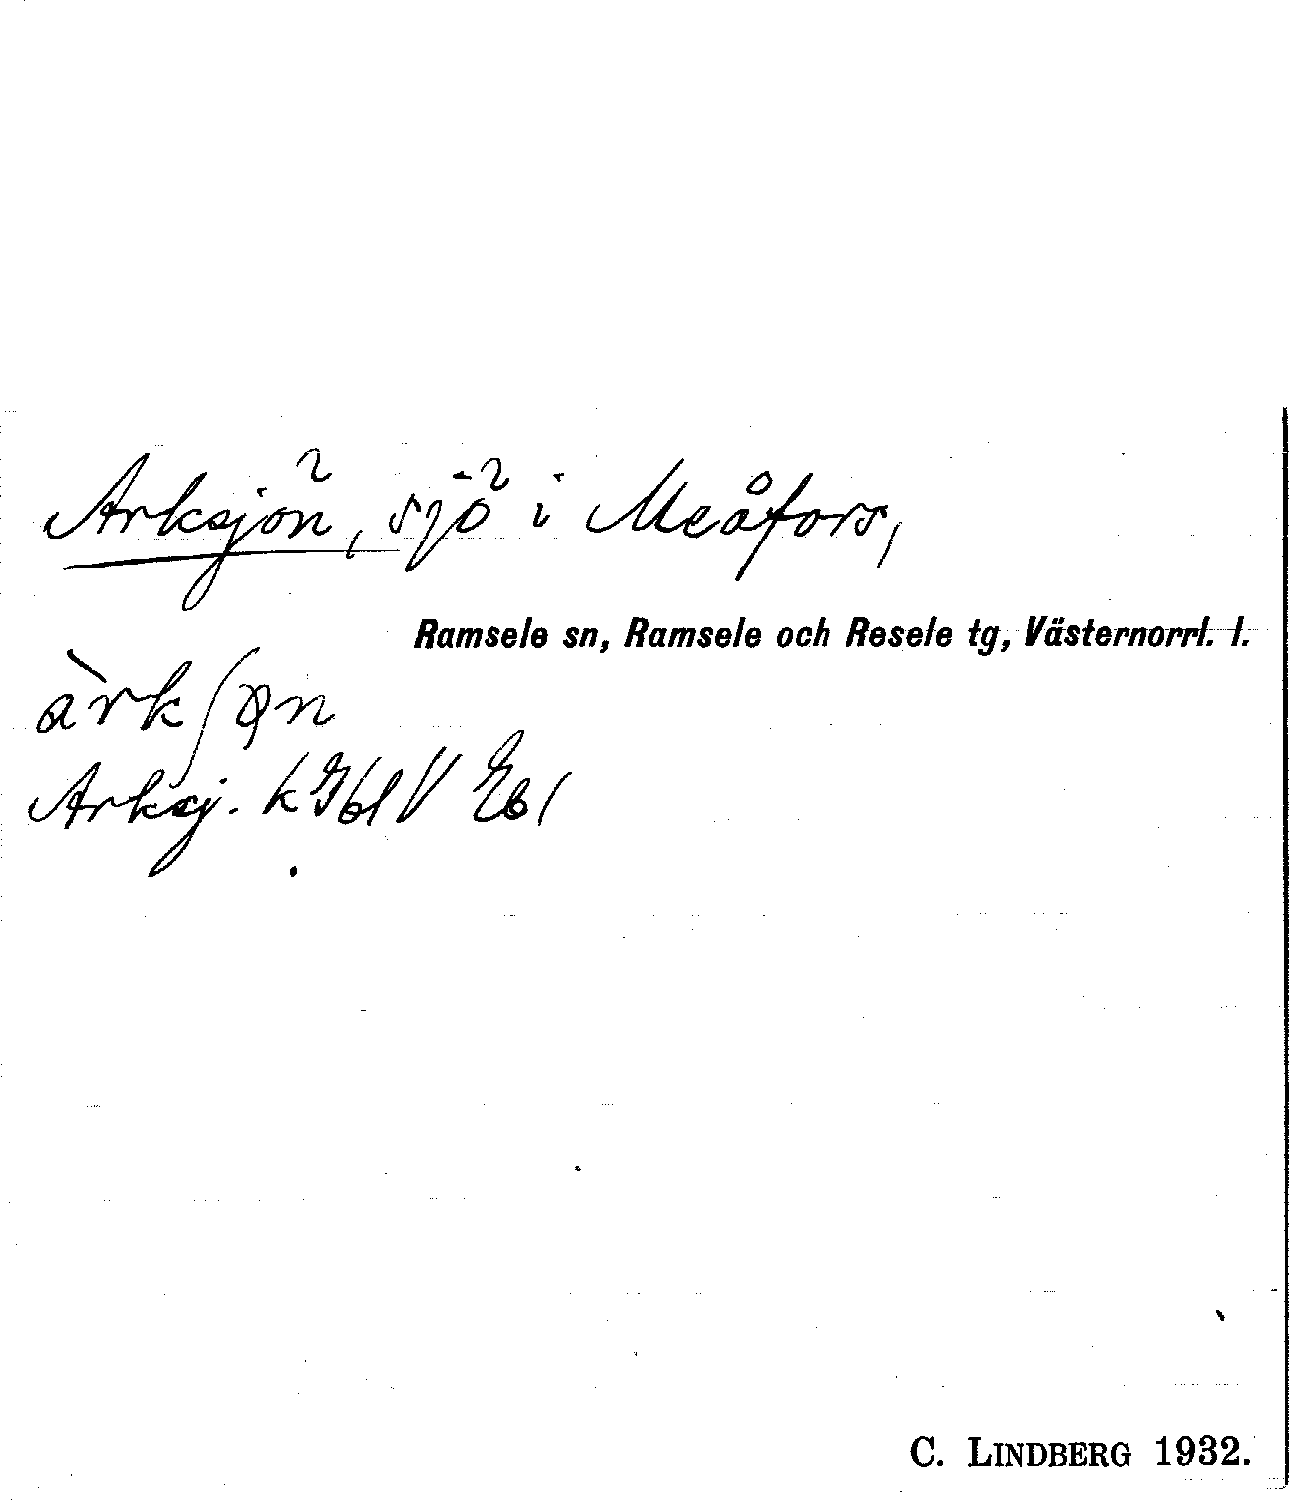 Arksjön, sjö i Meåfors,
Ramsele sn, Ramsele och Resele tg, Västernorrl. l.
àrkʃøn
Arksj. k Gbl V Ebl
C. LINDBERG 1932.